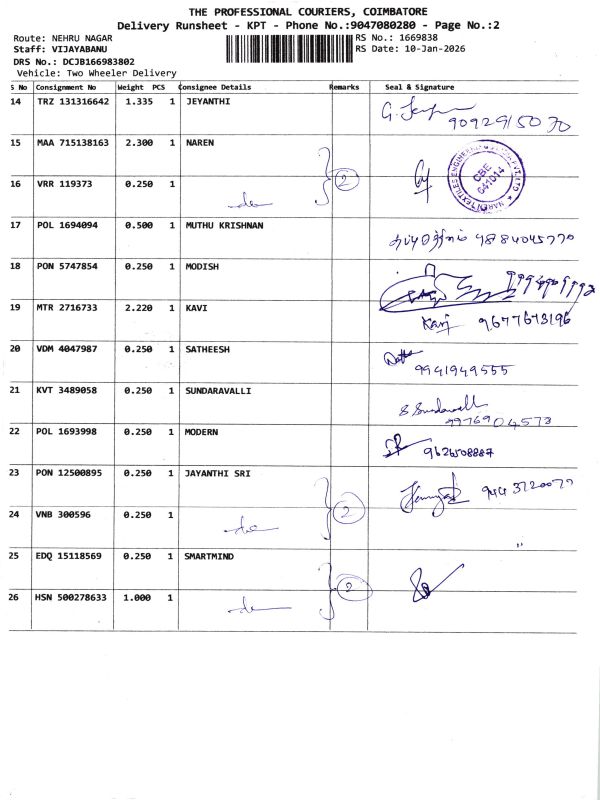 THE PROFESSIONAL COURIERS, COIMBATORE
Delivery Runsheet - KPT - Phone No.:9047080280 - Page No.:2
Route: NEHRU NAGAR
Staff: VIJAYABANU
DRS No.: DCJB166983802
Vehicle: Two Wheeler Delivery
RS No.: 1669838
RS Date: 10-Jan-2026
S No Consignment No Weight PCS Consignee Details Remarks Seal & Signature
14 TRZ 131316642 1.335 1 JEYANTHI
9092915070
15 MAA 715138163 2.300 1 NAREN
CBE 641014
16 VRR 119373 0.250 1 2
17 POL 1694094 0.500 1 MUTHU KRISHNAN 9884045770
18 PON 5747854 0.250 1 MODISH
19 MTR 2716733 2.220 1 KAVI Kavi 9677673196
20 VDM 4047987 0.250 1 SATHEESH
9941949555
21 KVT 3489058 0.250 1 SUNDARAVALLI S Sundaravalli
9976904573
22 POL 1693998 0.250 1 MODERN 9626508887
23 PON 12500895 0.250 1 JAYANTHI SRI
24 VNB 300596 0.250 1 2
25 EDQ 15118569 0.250 1 SMARTMIND
26 HSN 500278633 1.000 1 2